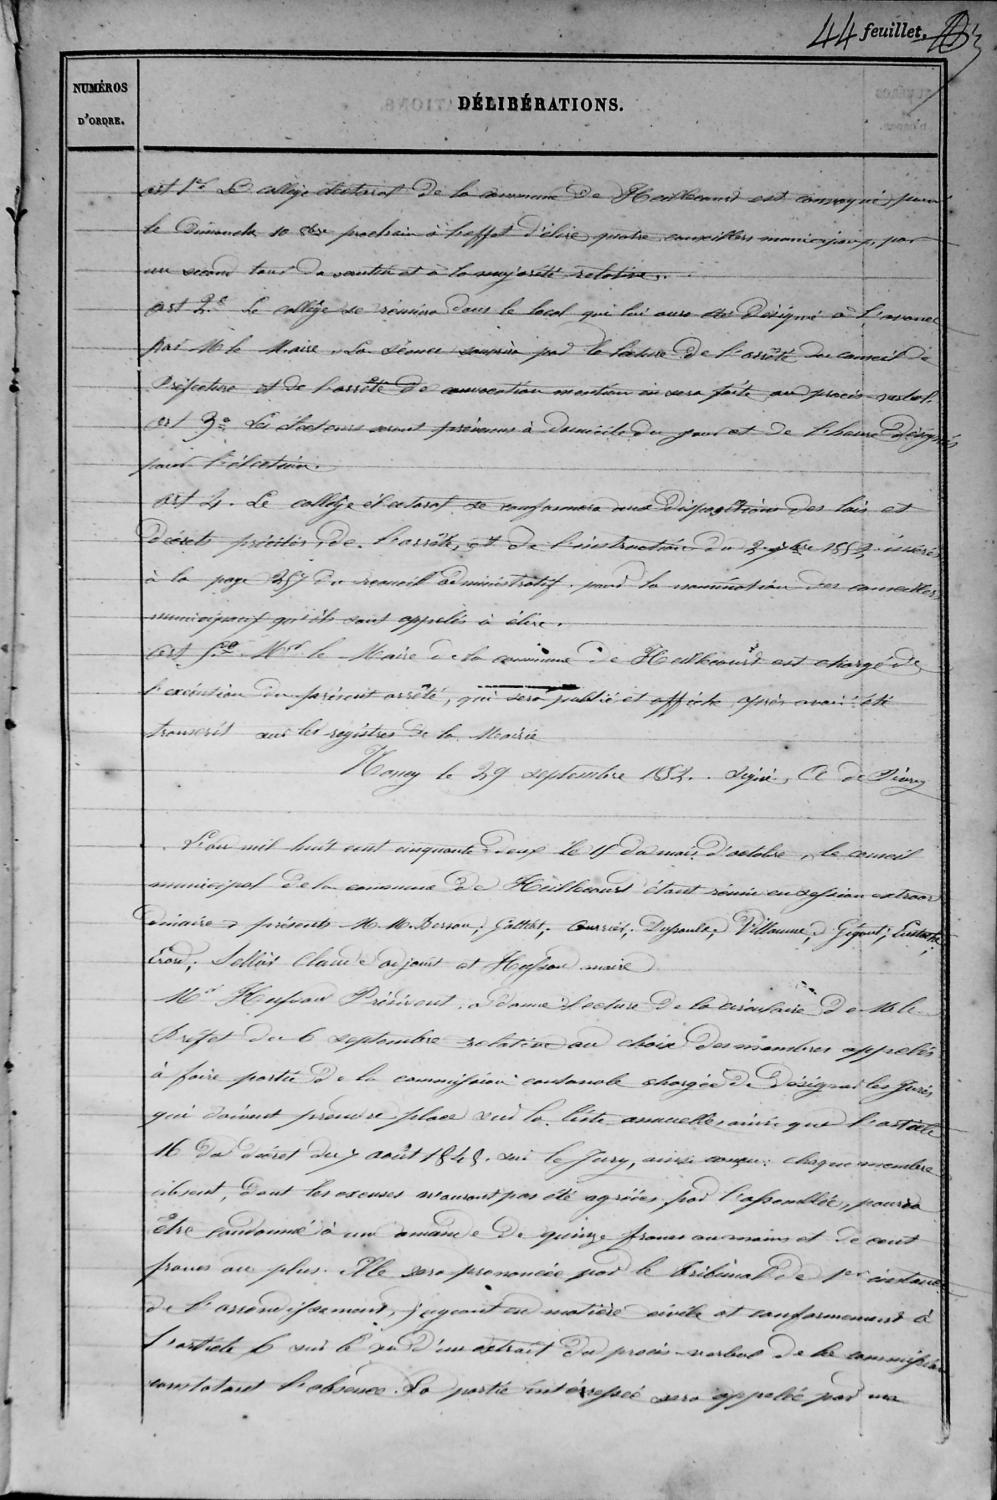 44 feuillet.
NUMÉROS
D'ORDRE.
DÉLIBÉRATIONS.
art 1er Le collège électoral de la commune de Heillecourt est convoqué, pour
le Dimanche 10 8bre prochain à l'effet d'élire quatre conseillers municipaux, par
un second tour de scrutin et à la majorité relative.
art 2e Le collège se réunira dans le local qui lui aura été désigné à l'avance
par Mr le Maire. La séance souvrira par la lecture de l'arrêté du conseil de
Préfecture et de l'arrêté de convocation mention en sera faite au procès-verbal.
art 3e Les électeurs seront prévenus à domicile du jour et de l'heure désignés
pour l'élection.
art 4. Le collège électoral se conformera aux dispositions des lois et
décrets précités, de l'arrêté, et de l'instruction du 1852 insérés
à la page 257 du recueil administratif. pour la nomination des conseillers
municipaux qu'ils sont appelés à élire.
art 5e Mr le Maire de la commune de Heillecourt est chargé de
l'exécution du présent arrêté, qui sera publié et affiché après avoir été
transcrit sur les registres de la Mairie
Nancy le 29 septembre 1852. signé, A de
L'an mil huit cent cinquante deux le 15 du mois d'octobre, le conseil
municipal de la commune de Heillecourt étant réuni en session extraor
dinaire, présents M. M. Masson, Dussaulx, Villaume, Gigout, Eustache
Claude adjoint et Husson maire
Mr Husson Président, a donné lecture de la circulaire de Mr le
Préfet du 6 septembre relative au choix des membres appelés
à faire partie de la commission cantonale chargée de désigner les Jurés
qui doivent prendre place sur la liste annuelle, ainsi que l'article
16 du décret du 7 août 1848. sur le Jury, ainsi conçu: chaque membre
absent, dont les excuses n'auront pas été agréées par l'assemblée, pourra
être condamné à une amande de quinze francs au moins et de cent
francs au plus. Elle sera prononcée par le tribunal de 1er instance
de l'arrondissement, jugeant en matière civile et conformement à
l'article 6 sur le vu d'un extrait du procès-verbal de la commission
constatant l'absence. La partie intéressée sera appelée par un